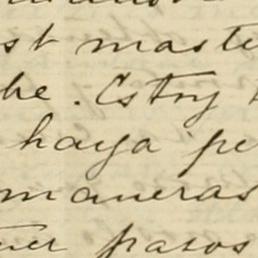 st maste
he. Estoy
haya pe
maneras
ner pasos